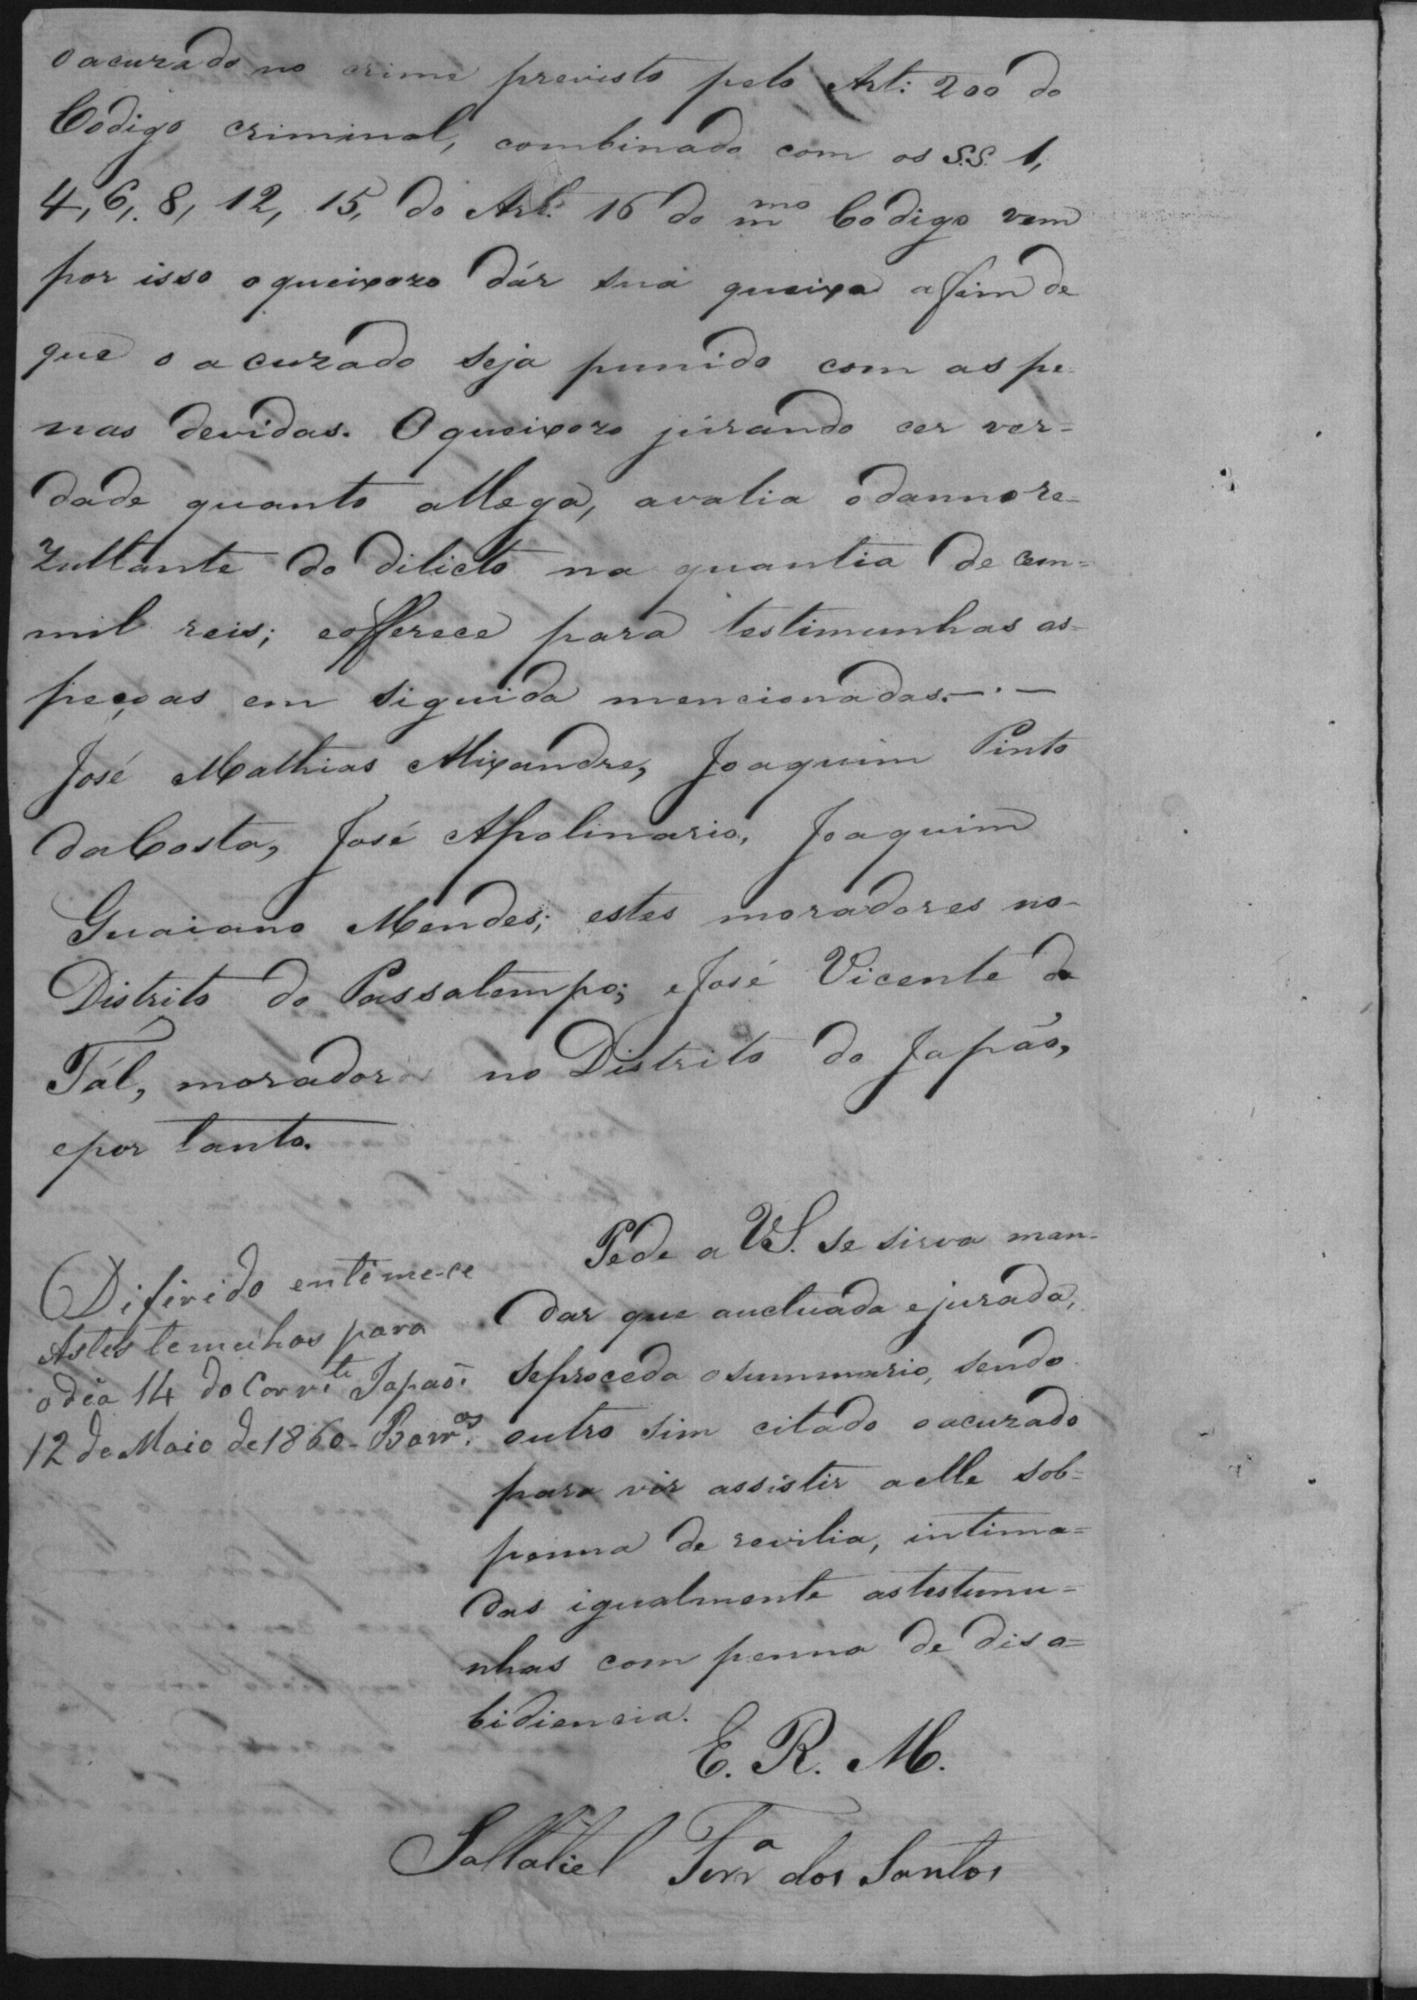 o acuzado no crime previsto pelo Art: 200 do
Codigo criminal, combinado com os S.S. 1,
4, 6, 8, 12, 15, do Art. 16 do mmo Codigo vem
por isso o queixozo dár sua queixa afim de
que o acuzado seja punido com as pe-
nas devidas. O queixozo jurando cer ver=
dade quanto allega, avalia o danno re=
zultante do dilicto na quantia de cem=
mil reis; e offerece para testimunhas as=
peçoas em siguida mencionadas.—.—
José Mathias Alixandre, Joaquim Pinto
da Costa, José Apolinario, Joaquim
Guaiano Mendes; estes moradores no-
Distrito do Passatempo; e José Vicente de
Tál, morador no Distrito do Japão,
e por tanto.
Pede a V.S. se sirva man-
dar que auctuada e jurada,
se proceda o summario, sendo
outro sim citado o acuzado
para vir assistir a elle sob=
penna de revilia, intima=
das igualmente as testemu=
nhas com penna de diso=
bidiencia.
E. R. M.
Sallatiel Ferra dos Santos
Difirido entime-ce
As testemunhas para
o dia 14 do Corrte Japaõ
12 de Maio de 1860 - Barros